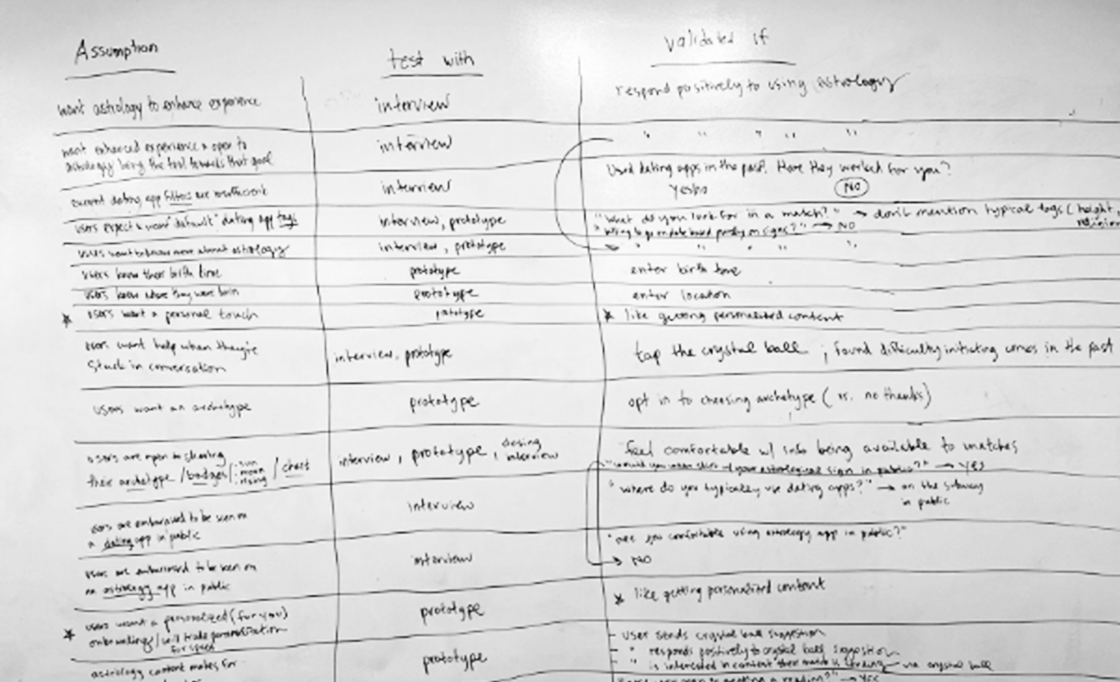 Assumption test with validated if
want astrology to enhance experience interview respond positively to using astrology
want enhanced experience & open to
astrology being the tool towards that goal interview " " " " "
current dating app filters are insufficient interview Used dating apps in the past? Have they worked for you?
NO
users expect & want "default" dating app tags interview, prototype "What do you look for in a match?" → don't mention typical tags (height,
on signs?" → NO
users want to know more about astrology interview, prototype " " " " "
users know their birth time prototype enter birth time
users know where they were born prototype enter location
* users want a personal touch prototype * like getting personalized content
users want help when they're
stuck in conversation interview, prototype tap the crystal ball ; found difficulty initiating convos in the past
users want an archetype prototype opt in to choosing archetype (vs. no thanks)
users are open to sharing
their archetype / badges / sun moon rising / chart interview, prototype, interview feel comfortable w/ info being available to matches
your astrological sign in public?" → yes
users are embarrassed to be seen on
a dating app in public interview "where do you typically use dating apps?" → on the subway
in public
users are embarrassed to be seen on
an astrology app in public interview "are you comfortable using astrology app in public?"
→ NO
* users want a personalized (for you)
onboarding / will trade personalization
for speed prototype * like getting personalized content
astrology content makes for prototype - user sends crystal ball suggestion
- " responds positively to crystal ball suggestion
- " is interested in content their match is sending via crystal ball